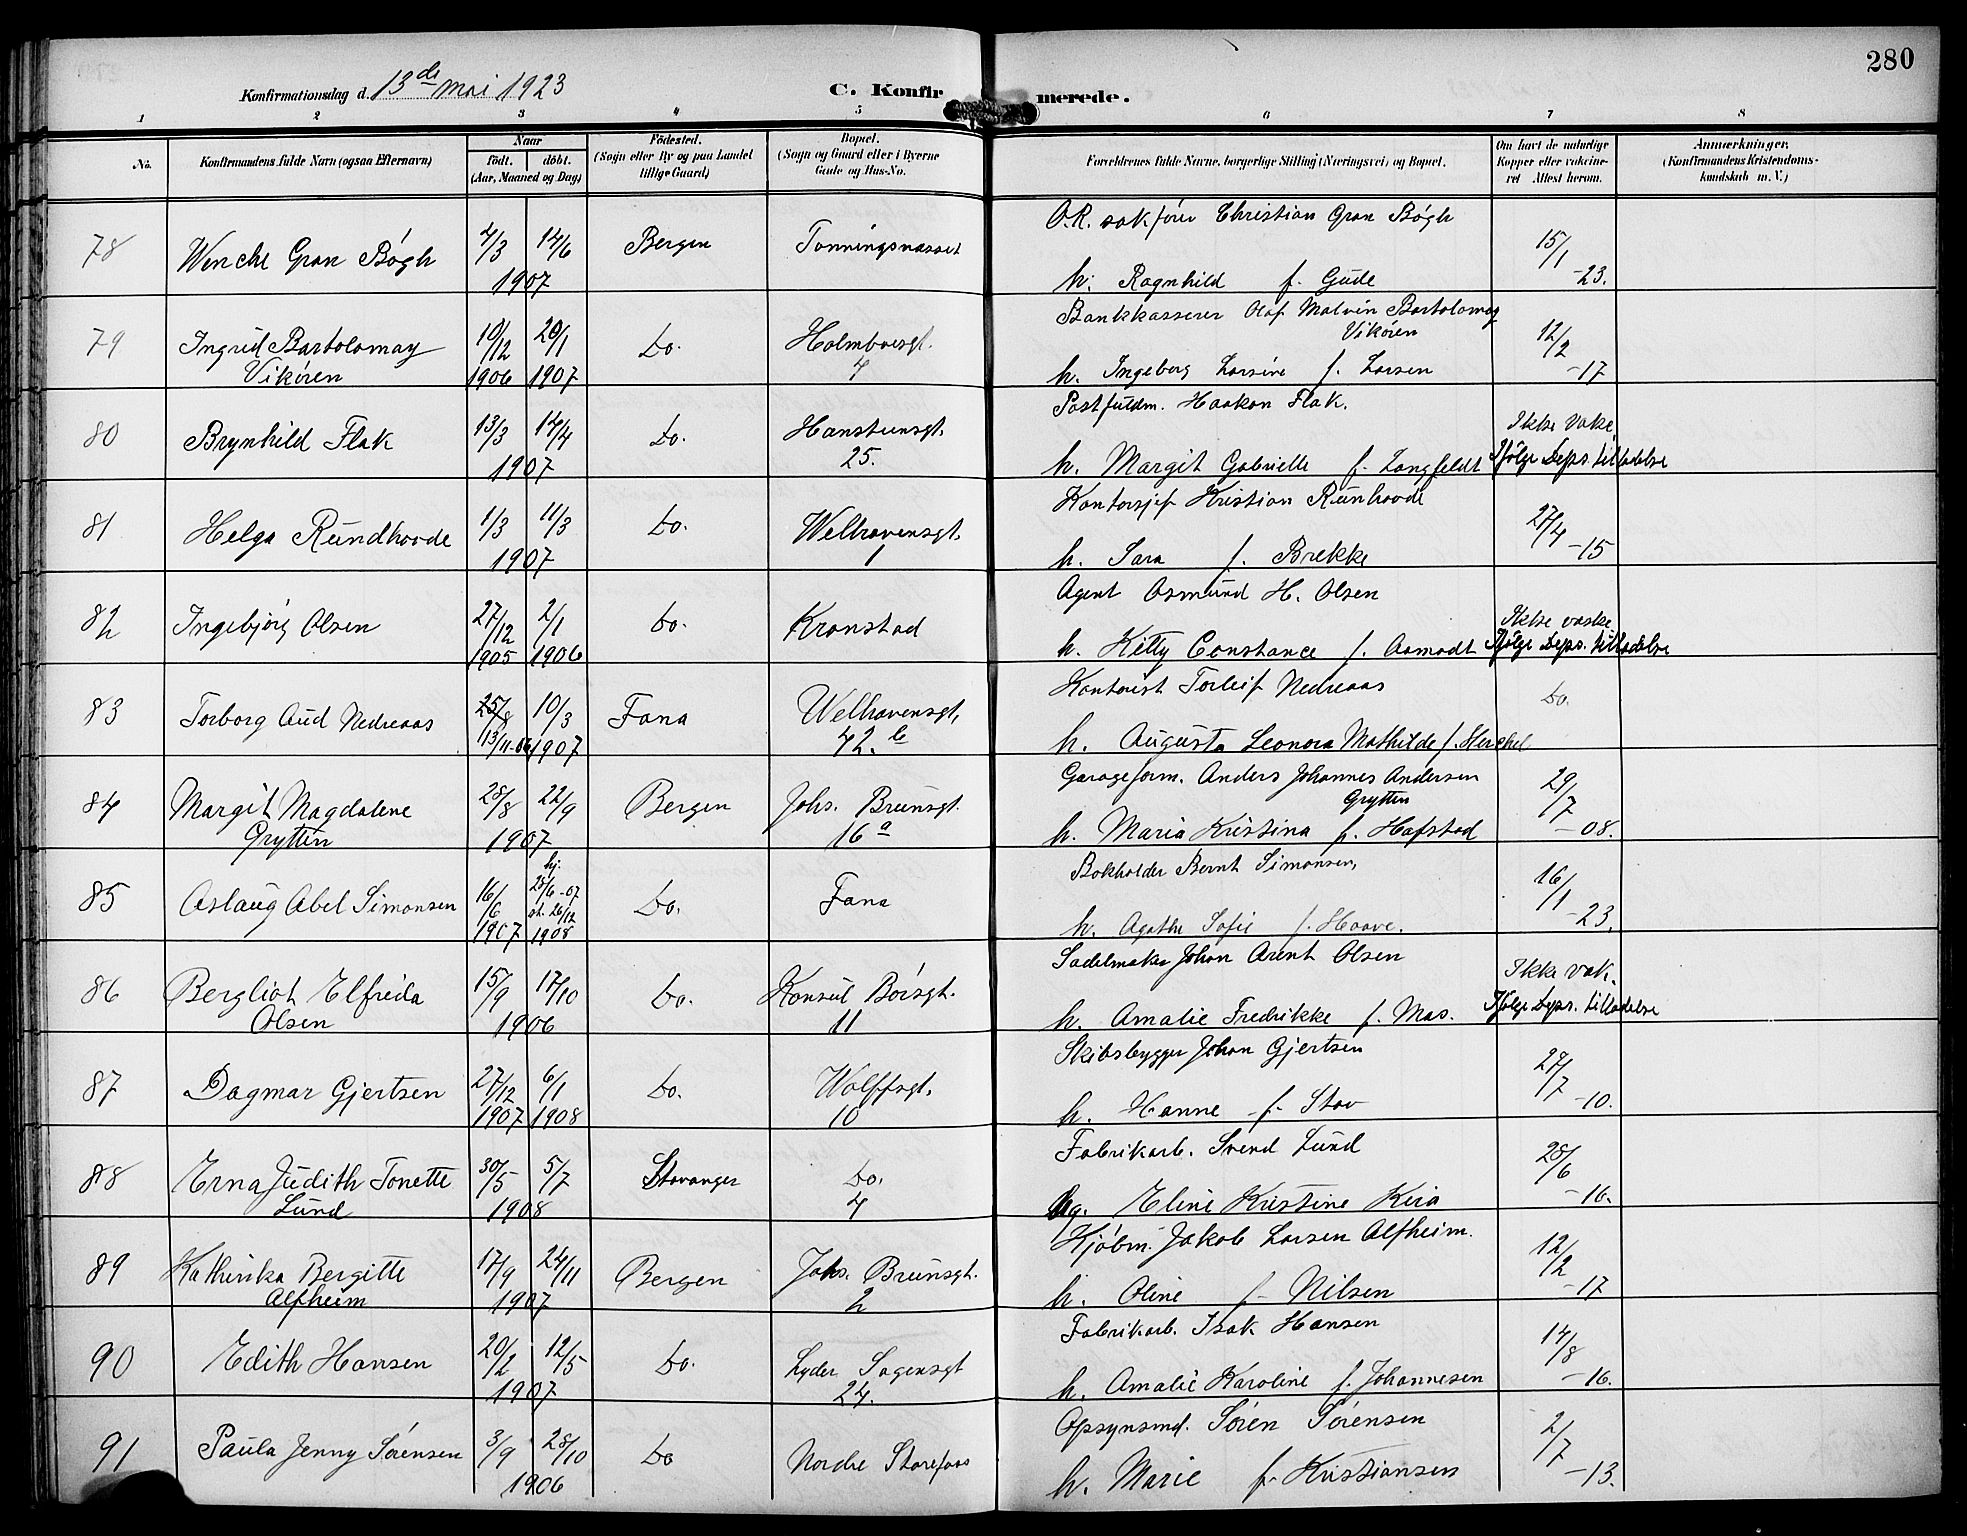 280
Konfirmationsdag d. 13de mai 1923
C. Konfirmerede.
1 2 3 4 5 6 7 8
No.
Konfirmandens fulde Navn (ogsaa Efternavn)
Naar
födt. döbt.
(Aar, Maaned og Dag)
Födested.
(Sogn eller By og paa Landet
tillige Gaard)
Bopæl.
(Sogn og Gaard eller i Byerne
Gade og Hus-No.
Forældrenes fulde Navne, borgerlige Stilling (Næringsvei) og Bopæl.
Om havt de naturlige
Kopper eller vakcine-
ret Attest herom.
Anmærkninger.
(Konfirmandens Kristendoms-
kundskab m. V.)
78 Wenche Gran Bøgh 4/3 14/6 1907 Bergen Tonningsnæsset
O.R. sakfører Christian Gran Bøgh
h. Ragnhild f. Gude 15/1 -23.
79 Ingrid Bartolomay
Vikøren 10/12 1906 20/1 1907 Do. Holmboesgt.
4
Bankkasserer Olaf Malvin Bartolomay
Vikøren
h. Ingeborg Larsine f. Larsen 12/2 -17
80 Brynhild Flak 13/3 14/4 1907 Do. Hansteensgt.
25.
Postfuldm. Haakon Flak.
h. Margit Gabrielle f. Langfeldt Ikke vakc.
Ifølge Deps. tilladelse
81 Helga Rundhovde 1/3 11/3 1907 Do. Welhavensgt.
1
Kontorsjef Kristian Runhovde
h. Sara f. Brekke 27/4 -15
82 Ingebjørg Olsen 27/12 1905 2/1 1906 Do. Kronstad
Agent Osmund H. Olsen
h. Kitty Constance f. Aamodt Ikke vakc.
Ifølge Deps. tilladelse
83 Torborg Aud Nedreaas 25/8 13/11-06 10/3 1907 Fana Welhavensgt.
42. b
Kontorist Torleif Nedreaas
h. Augusta Leonora Mathilde f. Herchel Do.
84 Margit Magdalene
Grytten 28/8 22/9 1907 Bergen Johs. Brunsgt.
16 a
Garageform. Anders Johannes Andersen
Grytten
h. Maria Kristina f. Hafstad 29/7 -08.
85 Aslaug Abel Simonsen 16/6 1907 hj. 28/6-07 st. 26/12 1908 Do. Fana
Bokholder Bernt Simonsen,
h. Agathe Sofie f. Haave. 16/1 -23.
86 Bergliot Elfrida
Olsen 15/9 17/10 1906 Do. Konsul Børsgt.
11
Sadelmaker Johan Arent Olsen
h. Amalie Fredrikke f. Mas. Ikke vak.
Ifølge Deps. tilladelse
87 Dagmar Gjertsen 27/12 1907 6/1 1908 Do. Wolffsgt.
10
Skibsbygger Johan Gjertsen
h. Hanne f. Stav 27/7 -10.
88 Erna Judith Tonette
Lund 30/5 5/7 1908 Stavanger Do.
4
Fabrikarb. Svend Lund
Ug. Eline Kristine Kira 28/6 -16.
89 Kathinka Bergitte
Alfheim 17/9 24/11 1907 Bergen Johs. Brunsgt.
2
Kjøbm. Jakob Larsen Alfheim.
h. Oline f. Nilsen 12/2 -17
90 Edith Hansen 20/2 12/5 1907 Do. Lyder Sagensgt
24.
Fabrikarb. Isak Hansen
h. Amalie Karoline f. Johannesen 14/8 -16.
91 Paula Jenny Sørensen 3/9 28/10 1906 Do Nordre Storefos
Opsynsmd. Søren Sørensen
h. Marie f. Kristiansen 2/7 -13.